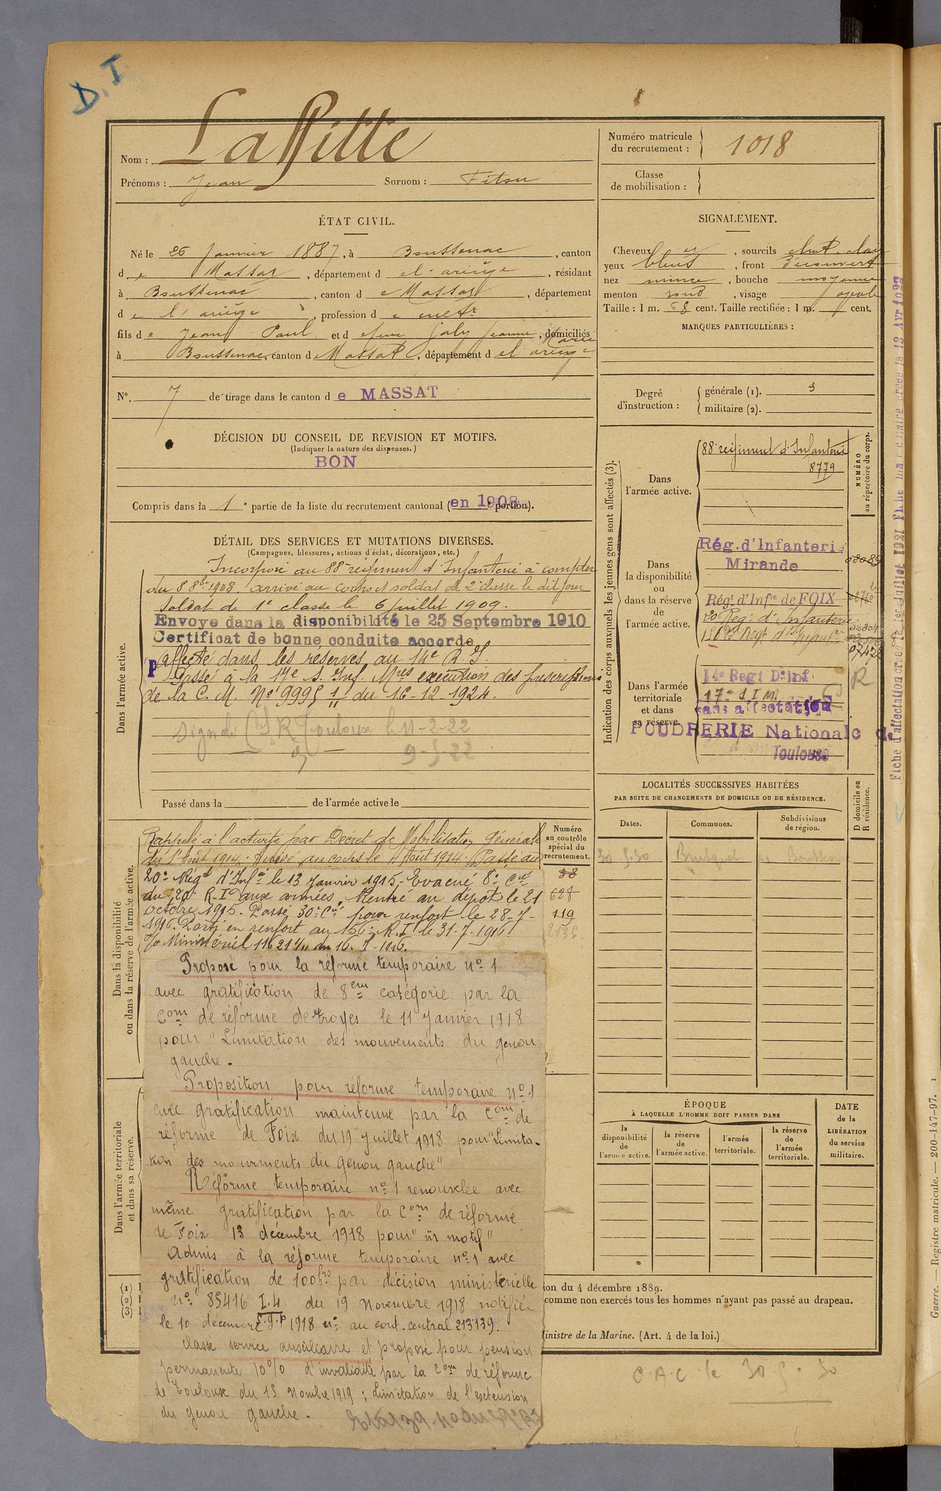 D.I
Nom : Lapitte
Prénoms : Jean Surnom :
Numéro matricule
du recrutement : 1018
Classe
de mobilisation :
ÉTAT CIVIL.
Né le 26 Janvier 1887, à Boussenac, canton
de Massat, département de l'ariège, résidant
à Boussenac, canton de Massat, département
de l'ariège, profession de
fils de Jean Paul et de feue Galy Jeanne Marie, domiciliés
à Boussenac, canton de Massat, département de l'ariège
N°. 7 de tirage dans le canton de MASSAT
DÉCISION DU CONSEIL DE REVISION ET MOTIFS.
(Indiquer la nature des dispenses.)
BON
Compris dans la 1e partie de la liste du recrutement cantonal (en 1908 portion).
SIGNALEMENT.
Cheveux et, sourcils chat. clair
yeux bleus, front découvert
nez mince, bouche moyenne
menton rond, visage ovale
Taille : 1 m. 68 cent. Taille rectifiée : 1 m. cent.
MARQUES PARTICULIÈRES :
Degré
d'instruction :
générale (1). 3
militaire (2).
DÉTAIL DES SERVICES ET MUTATIONS DIVERSES.
(Campagnes, blessures, actions d'éclat, décorations, etc.)
Dans l'armée active.
Incorporé au 88e régiment d'Infanterie à compter
du 8 8bre 1908, arrivé au corps et soldat de 2e classe le dit jour
Soldat de 1e classe le 6 juillet 1909.
Envoyé dans la disponibilité le 25 Septembre 1910
Certificat de bonne conduite accordé
affecté dans les réserves au 14e R.I.
Passé à la 17e S. Inf. Mres exécution des prescriptions
de la C.M. N° 9995 1/11 du 16-12-1924.
Toulouse le 11-2-22
9-5-22
Passé dans la de l'armée active le
Dans la disponibilité
ou dans la réserve de l'armée active.
Rappelé à l'activité par Décret de Mobilisation Générale
du 1er Août 1914. Arrivé au corps le 4 Août 1914. Passé au
20e Régt d'Infie le 13 Janvier 1915. Evacué 8e Cie
du 20e R.I. aux armées. Rentré au dépôt le 21
octobre 1915. Passé 30e Cie pour renfort le 28-7-
1916. Parti en renfort au 156e R.I. le 31-7-1916
Do Ministériel 11621 du 16-7-1916.
Numéro
au contrôle
spécial du
recrutement.
88
628
119
Proposé pour la réforme temporaire n° 1
avec gratification de 8em catégorie par la
Com de réforme de Troyes le 11 Janvier 1918
pour "Limitation des mouvements du genou
gauche.
Proposition pour réforme temporaire n° 1
avec gratification maintenue par la Com de
réforme de Foix du 19 Juillet 1918 pour "Limita-
tion des mouvements du genou gauche"
Réforme temporaire n° 1 renouvelée avec
même gratification par la Com de réforme
de Foix 13 décembre 1918 pour "m motif"
Admis à la réforme temporaire n° 1 avec
gratification de 100frs par décision ministérielle
n° 85416 I.4 du 19 Novembre 1918 notifiée
le 10 décembre 1918 n° au cont. central 213139.
Classé service auxiliaire et proposé pour pension
permanente 10% d'invalidité par la Com de réforme
de Toulouse du 13 Nombre 1919 ; Limitation de l'extension
du genou gauche.
Dans l'armée territoriale
et dans sa réserve.
(1)
(2)
(3)
ion du 4 décembre 1889.
comme non exercés tous les hommes n'ayant pas passé au drapeau.
Ministre de la Marine. (Art. 4 de la loi.)
Indication des corps auxquels les jeunes gens sont affectés (3).
Dans
l'armée active.
88e régiment d'Infanterie
8779
NUMÉRO
au répertoire du corps.
Dans
la disponibilité
ou
dans la réserve
de
l'armée active.
Rég. d'Infanterie
Mirande
Régt d'Infie de FOIX
20e Rég. d'Infanterie
156e Régt d'Infanterie
Dans l'armée
territoriale
et dans
sa réserve.
14e Regt D'inf.
17e S I M.
sans affectation
POUDRERIE Nationale de
Toulouse
R
Fiche d'affectation créée le 1er Juillet 1921
LOCALITÉS SUCCESSIVES HABITÉES
PAR SUITE DE CHANGEMENTS DE DOMICILE OU DE RÉSIDENCE.
Dates.
Communes.
Subdivisions
de région.
D domicile ou
R résidence.
ÉPOQUE
À LAQUELLE L'HOMME DOIT PASSER DANS
la
disponibilité
de
l'armée active.
la réserve
de
l'armée active.
l'armée
territoriale.
la réserve
de
l'armée
territoriale.
DATE
de la
LIBÉRATION
du service
militaire.
C.A.C. le 30-5-30
Guerre. — Registre matricule. — 200-147-97.